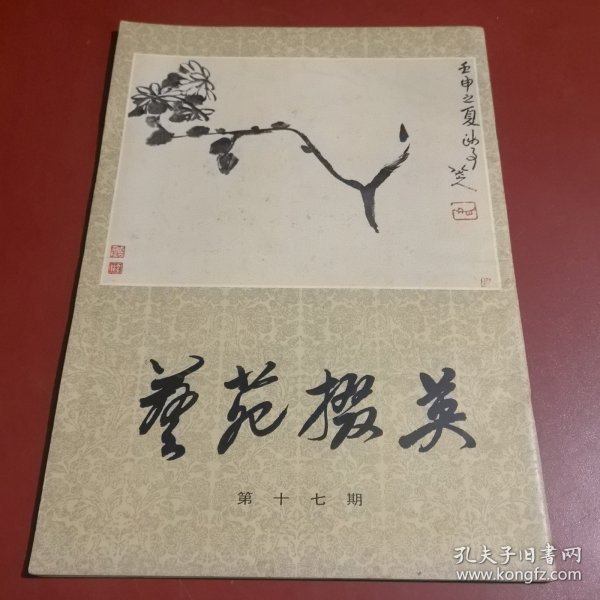 壬申之夏涉事
八大山人
藝苑掇英
第十七期
孔夫子旧书网
www.kongfz.com